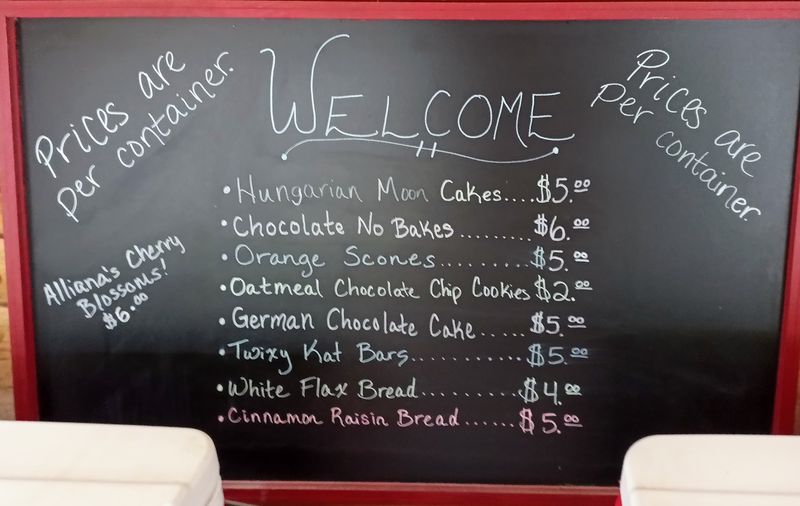 WELCOME
Prices are
per container.
Prices are
per container.
• Hungarian Moon Cakes....$5.00
• Chocolate No Bakes.........$6.00
• Orange Scones.........$5.00
• Oatmeal Chocolate Chip Cookies $2.00
• German Chocolate Cake.....$5.00
• Twixy Kat Bars............$5.00
• White Flax Bread..........$4.00
• Cinnamon Raisin Bread......$5.00
Alliana's Cherry
Blossoms!
$6.00